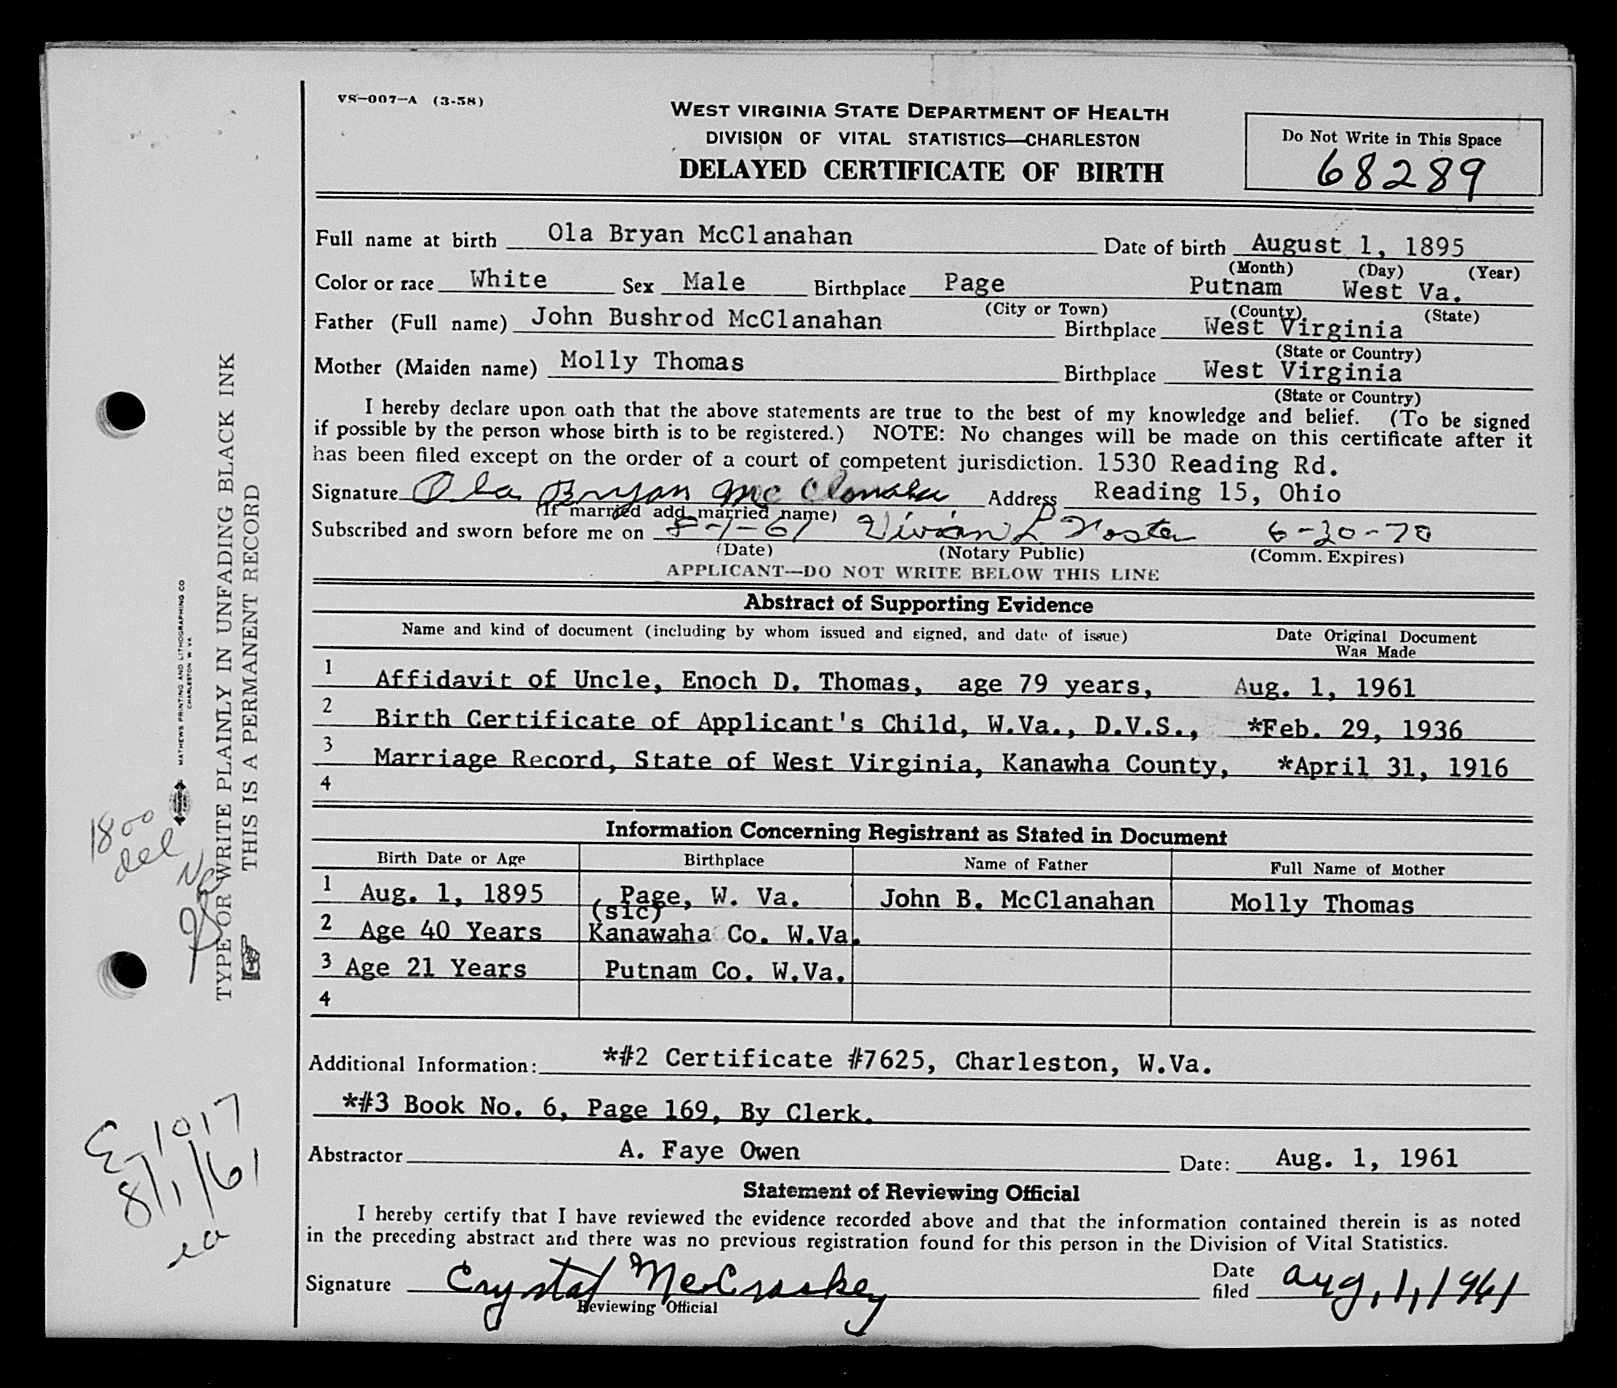 VS-007-A (3-58)
WEST VIRGINIA STATE DEPARTMENT OF HEALTH
DIVISION OF VITAL STATISTICS—CHARLESTON
DELAYED CERTIFICATE OF BIRTH
Do Not Write in This Space
68289
Full name at birth Ola Bryan McClanahan Date of birth August 1, 1895
(Month) (Day) (Year)
Color or race White Sex Male Birthplace Page Putnam West Va.
(City or Town) (County) (State)
Father (Full name) John Bushrod McClanahan Birthplace West Virginia
(State or Country)
Mother (Maiden name) Molly Thomas Birthplace West Virginia
(State or Country)
I hereby declare upon oath that the above statements are true to the best of my knowledge and belief. (To be signed
if possible by the person whose birth is to be registered.) NOTE: No changes will be made on this certificate after it
has been filed except on the order of a court of competent jurisdiction. 1530 Reading Rd.
Signature Ola Bryan McClanahan Address Reading 15, Ohio
(If married add married name)
Subscribed and sworn before me on 8-1-61 Vivian L Noster 6-20-70
(Date) (Notary Public) (Comm. Expires)
APPLICANT—DO NOT WRITE BELOW THIS LINE
Abstract of Supporting Evidence
Name and kind of document (including by whom issued and signed, and date of issue) Date Original Document
Was Made
1 Affidavit of Uncle, Enoch D. Thomas, age 79 years, Aug. 1, 1961
2 Birth Certificate of Applicant's Child, W.Va., D.V.S., *Feb. 29, 1936
3 Marriage Record, State of West Virginia, Kanawha County, *April 31, 1916
4
Information Concerning Registrant as Stated in Document
Birth Date or Age Birthplace Name of Father Full Name of Mother
1 Aug. 1, 1895 Page, W. Va. John B. McClanahan Molly Thomas
(sic)
2 Age 40 Years Kanawaha Co. W.Va.
3 Age 21 Years Putnam Co. W.Va.
4
Additional Information: *#2 Certificate #7625, Charleston, W.Va.
*#3 Book No. 6, Page 169, By Clerk.
Abstractor A. Faye Owen Date: Aug. 1, 1961
Statement of Reviewing Official
I hereby certify that I have reviewed the evidence recorded above and that the information contained therein is as noted
in the preceding abstract and there was no previous registration found for this person in the Division of Vital Statistics.
Signature Crystal McCroskey Date
filed Aug. 1, 1961
Reviewing Official
TYPE OR WRITE PLAINLY IN UNFADING BLACK INK
THIS IS A PERMANENT RECORD
MATHEWS PRINTING AND LITHOGRAPHING CO
CHARLESTON W VA
1800
del
E-1017
8/1/61
ea